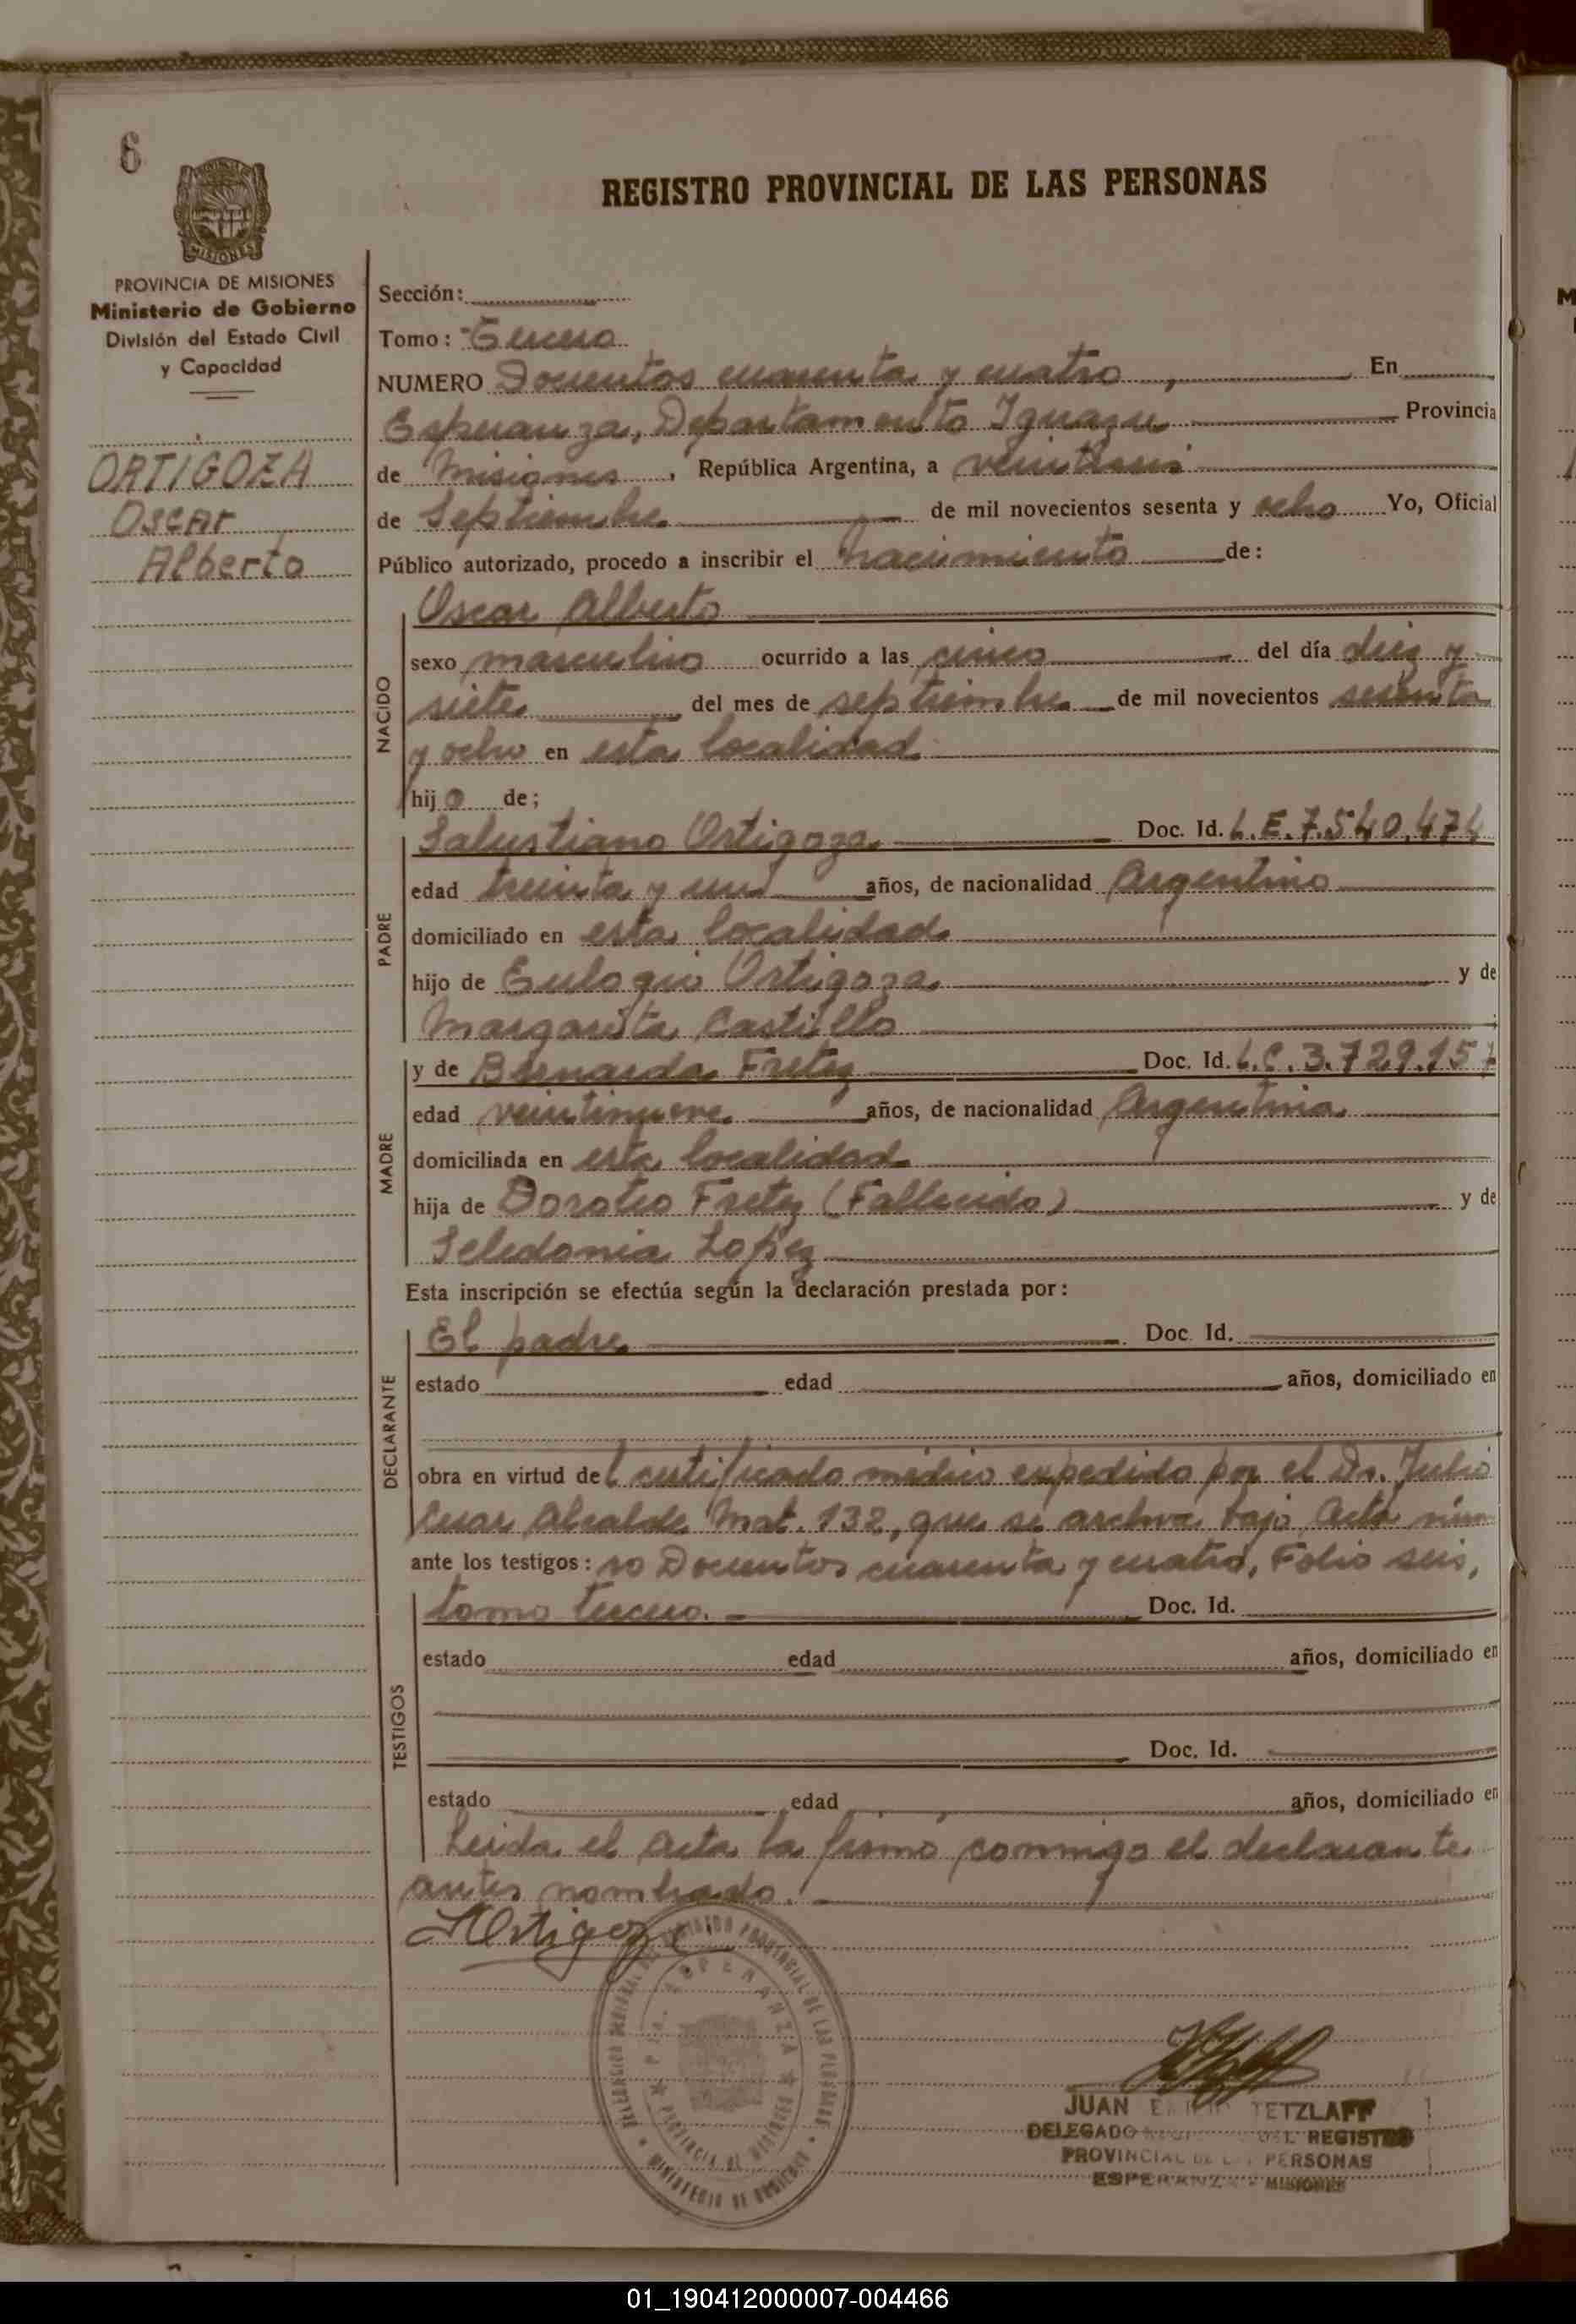 6
REGISTRO PROVINCIAL DE LAS PERSONAS
MISIONES
PROVINCIA DE MISIONES
Ministerio de Gobierno
División del Estado Civil
y Capacidad
ORTIGOZA
Oscar
Alberto
Sección:
Tomo: Tercero
NUMERO Docientos cuarenta y cuatro, En
Esperanza, Departamento Iguazu Provincia
de Misiones, República Argentina, a veintiseis
de Septiembre de mil novecientos sesenta y ocho Yo, Oficial
Público autorizado, procedo a inscribir el nacimiento de:
NACIDO
Oscar Alberto
sexo masculino ocurrido a las cinco del día diez y
siete del mes de septiembre de mil novecientos sesenta
y ocho en esta localidad
hijo de;
PADRE
Salustiano Ortigoza Doc. Id. L.E.7.540.474
edad treinta y un años, de nacionalidad Argentino
domiciliado en esta localidad
hijo de Eulogio Ortigoza y de
Margarita Castillo
MADRE
y de Bernarda Fretez Doc. Id. L.C.3.729.157
edad veintinueve años, de nacionalidad Argentina
domiciliada en esta localidad
hija de Doroteo Fretez (Fallecido) y de
Seledonia Lopez
Esta inscripción se efectúa según la declaración prestada por:
DECLARANTE
El padre Doc. Id.
estado edad años, domiciliado en
obra en virtud del certificado médico expedido por el Dr. Julio
Cesar Alcalde Mat. 132, que se archiva bajo Acta núm
ante los testigos: ro Docientos cuarenta y cuatro, Folio seis,
TESTIGOS
tomo tercero. Doc. Id.
estado edad años, domiciliado en
Doc. Id.
estado edad años, domiciliado en
Leida el Acta la firmó conmigo el declarante
antes nombrado.
SOrtigoza
PROVINCIAL DE LAS PERSONAS
ESPERANZA
PROVINCIA DE MISIONES
MINISTERIO DE GOBIERNO
JUAN TETZLAFF
DELEGADO DEL REGISTRO
PROVINCIAL DE LAS PERSONAS
ESPERANZA - MISIONES
01_190412000007-004466